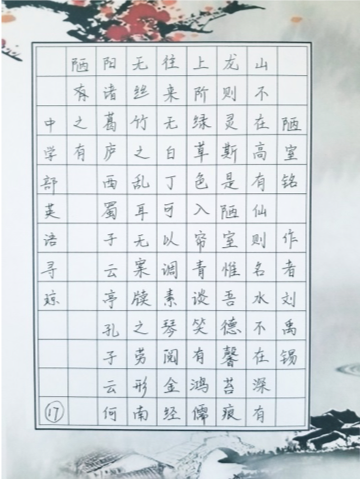 陋室铭 作者刘禹锡
山不在高有仙则名水不在深有
龙则灵斯是陋室惟吾德馨苔痕
上阶绿草色入帘青谈笑有鸿儒
往来无白丁可以调素琴阅金经
无丝竹之乱耳无案牍之劳形南
阳诸葛庐西蜀子云亭孔子云何
陋有之有
中学部英语寻琼 ⑰